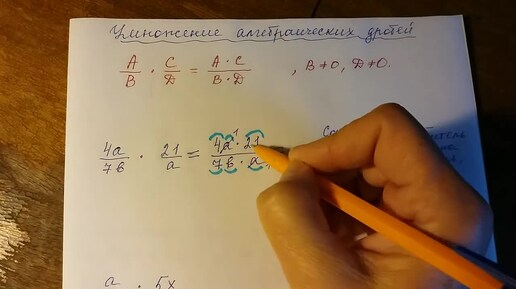 Умножение алгебраических дробей
A/B · C/D = A · C/B · D , B ≠ 0, D ≠ 0.
4a/7b · 21/a = 4a¹ · 21/7b · a
a · 5x